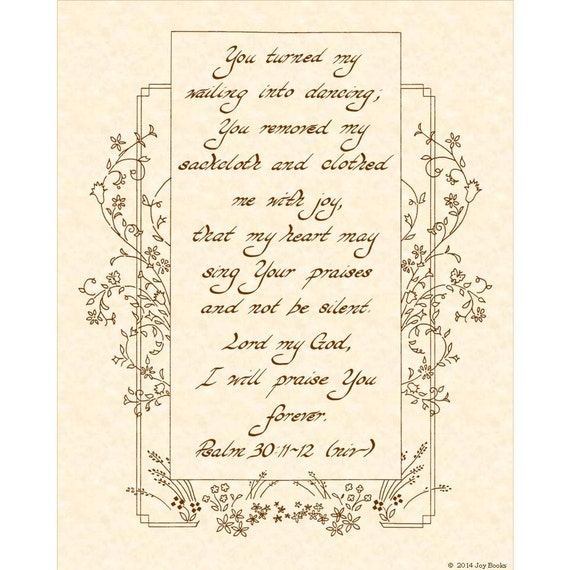 You turned my
wailing into dancing;
You removed my
sackcloth and clothed
me with joy,
that my heart may
sing Your praises
and not be silent.
Lord my God,
I will praise You
forever.
Psalm 30:11~12 (niv~)
© 2014 Joy Books